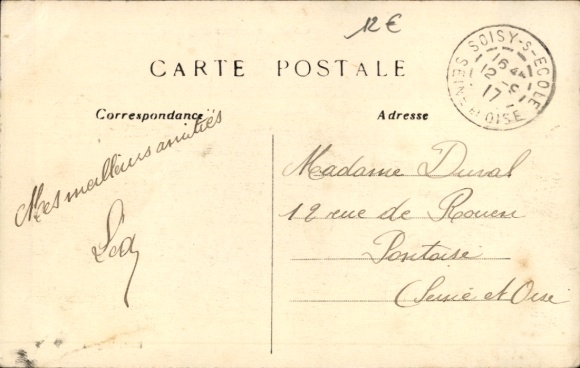 12€
CARTE POSTALE
Correspondance
Adresse
SOISY-S-ECOLE
16
12 -
17
SEINE-ET-OISE
Mes meilleurs amitiés
Madame Duval
12 rue de Rouen
Pontoise
(Seine et Oise